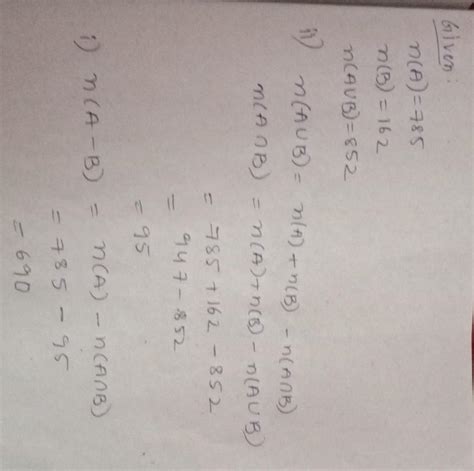 Given:
n(A)=785
n(B)=162
n(A∪B)=852
ii) n(A∪B) = n(A)+n(B) - n(A∩B)
n(A∩B) = n(A)+n(B) - n(A∪B)
= 785+162 - 852
= 947-852
= 95
i) n(A-B) = n(A) - n(A∩B)
= 785 - 95
= 690